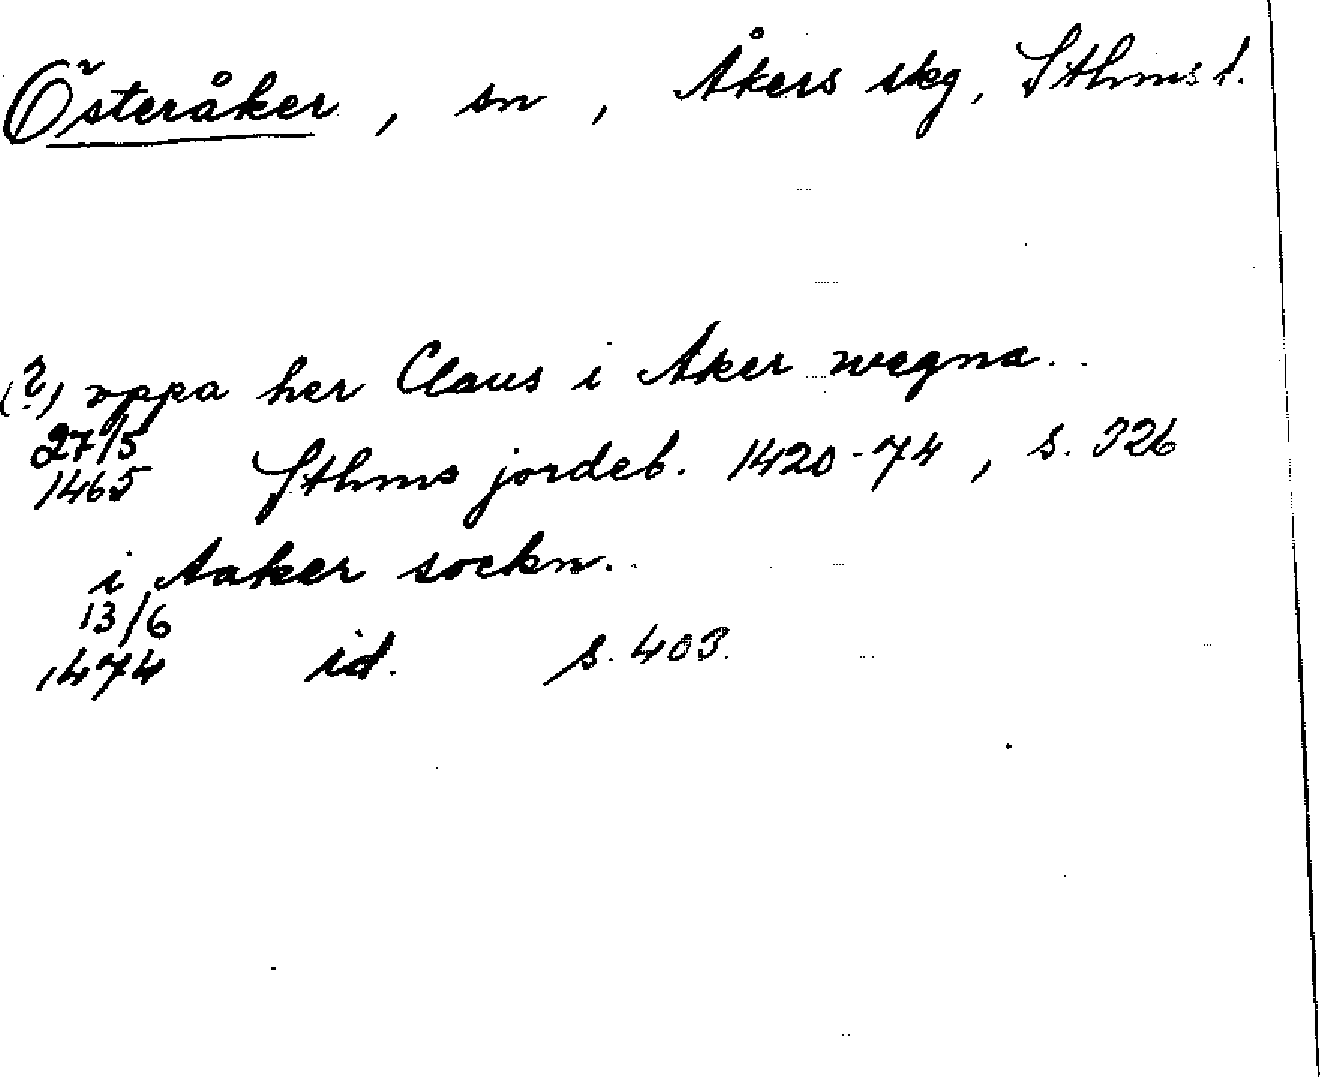 Österåker, sn, Åkers skg, Sthms l.
(?) vppa her Claus i Aker wegna..
27/5
1465 Sthms jordeb. 1420-74, s. 326
i Aaker sockn..
13/6
1474 id. s. 403.